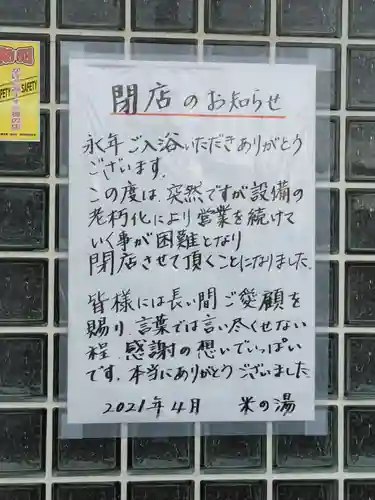 閉店のお知らせ
永年ご入浴いただきありがとう
ございます.
この度は、突然ですが設備の
老朽化により営業を続けて
いく事が困難となり
閉店させて頂くことになりました.
皆様には長い間ご愛顧を
賜り、言葉では言い尽くせない
程、感謝の想いでいっぱい
です.本当にありがとうございました
2021年4月 米の湯
SAFETY